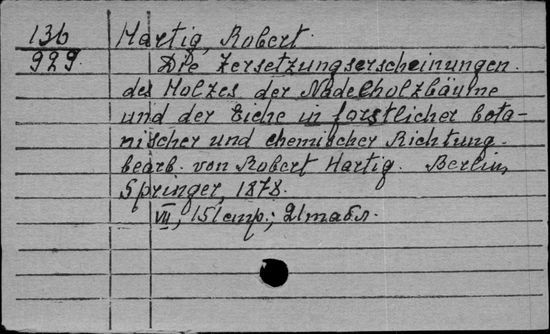 136 Hartig, Robert.
929. Die Zersetzungserscheinungen
des Holzes der Nadelholzbäume
und der Eiche in forstlicher bota-
nischer und chemischer Richtung.
bearb. von Robert Hartig. Berlin,
Springer, 1878.
VII, 151 стр.; 21 табл.